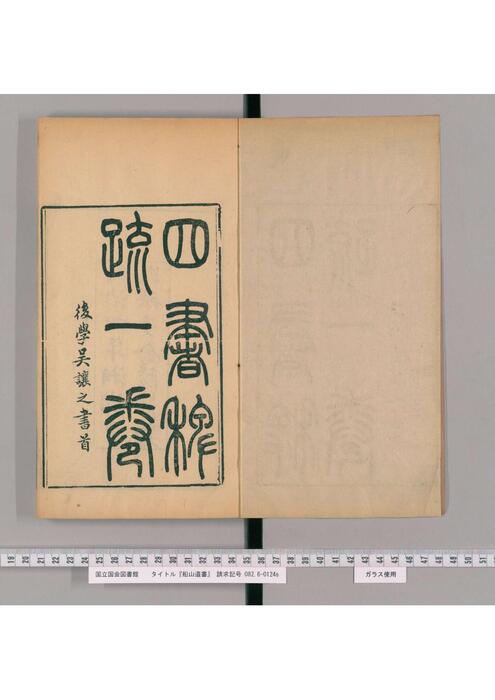 四書稗
疏一卷
後學吳讓之書首
19 20 21 22 23 24 25 26 27 28 29 30 31 32 33 34 35 36 37 38 39 40 41 42 43 44 45 46 47 48 49 50 51
国立国会図書館 タイトル『船山遺書』 請求記号 082.6-O124s
ガラス使用